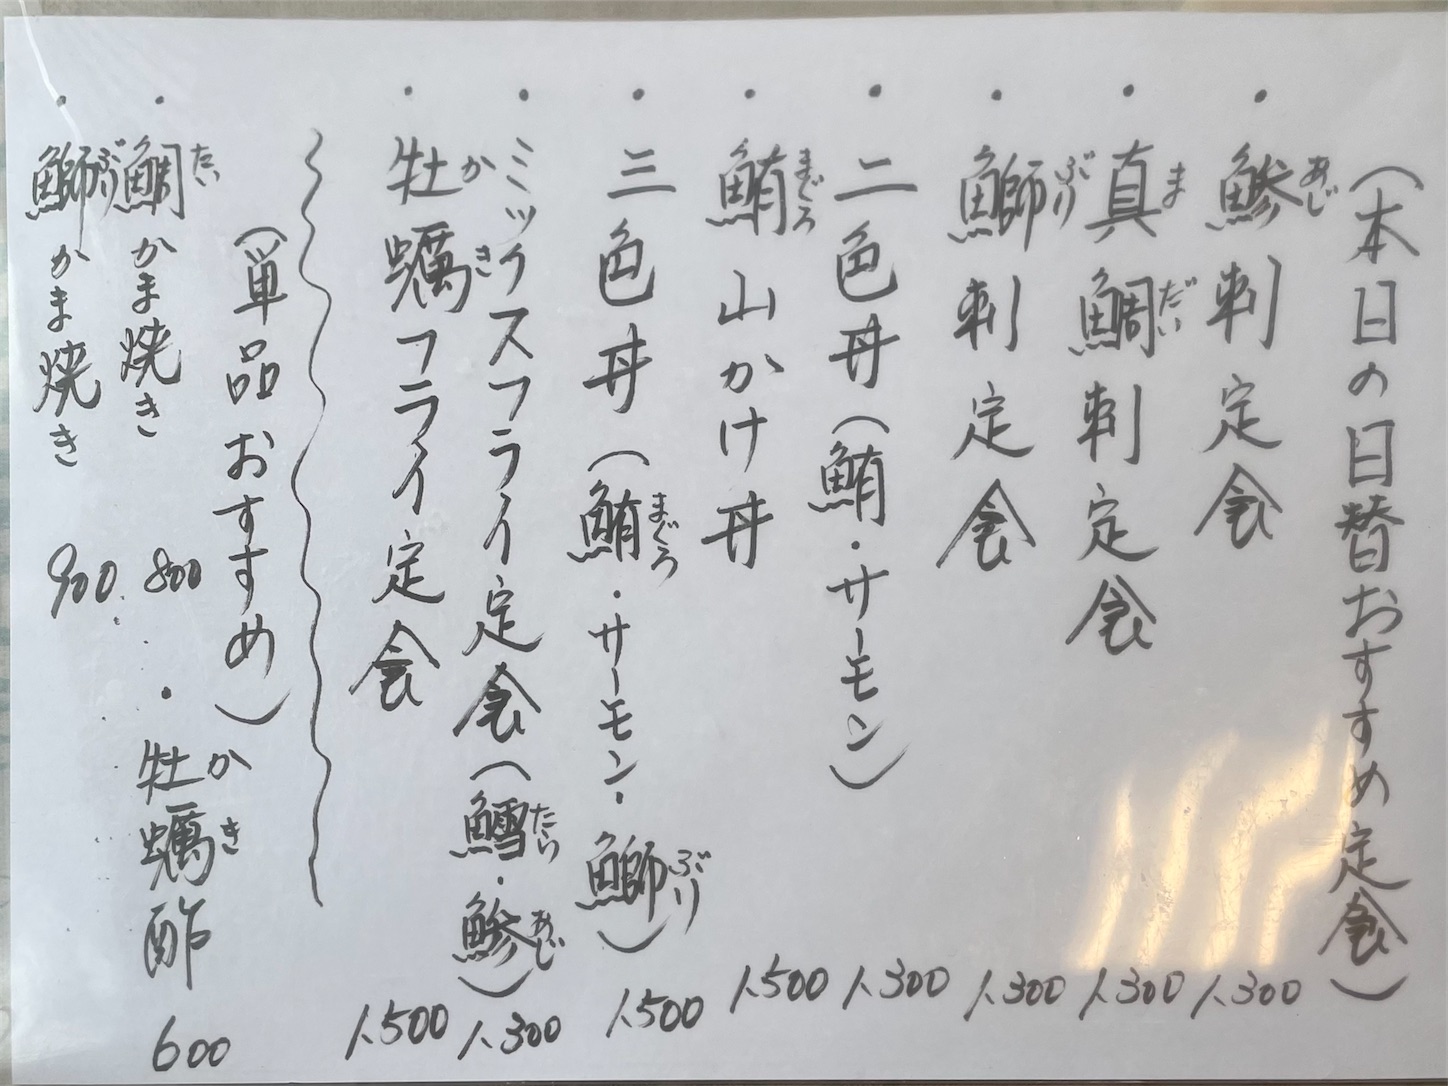 (本日の日替おすすめ定食)
・鯵刺定食 1.300
あじ
・真鯛刺定食 1.300
まだい
・鰤刺定食 1.300
ぶり
・二色丼(鮪・サーモン) 1.300
・鮪山かけ丼 1.500
まぐろ
・三色丼(鮪・サーモン・鰤) 1.500
まぐろ ぶり
・ミックスフライ定食(鱈・鯵) 1.300
たら あじ
・牡蠣フライ定食 1.500
かき
(単品おすすめ)
・鯛かま焼き 800
たい
・牡蠣酢 600
かき
・鰤かま焼き 900
ぶり